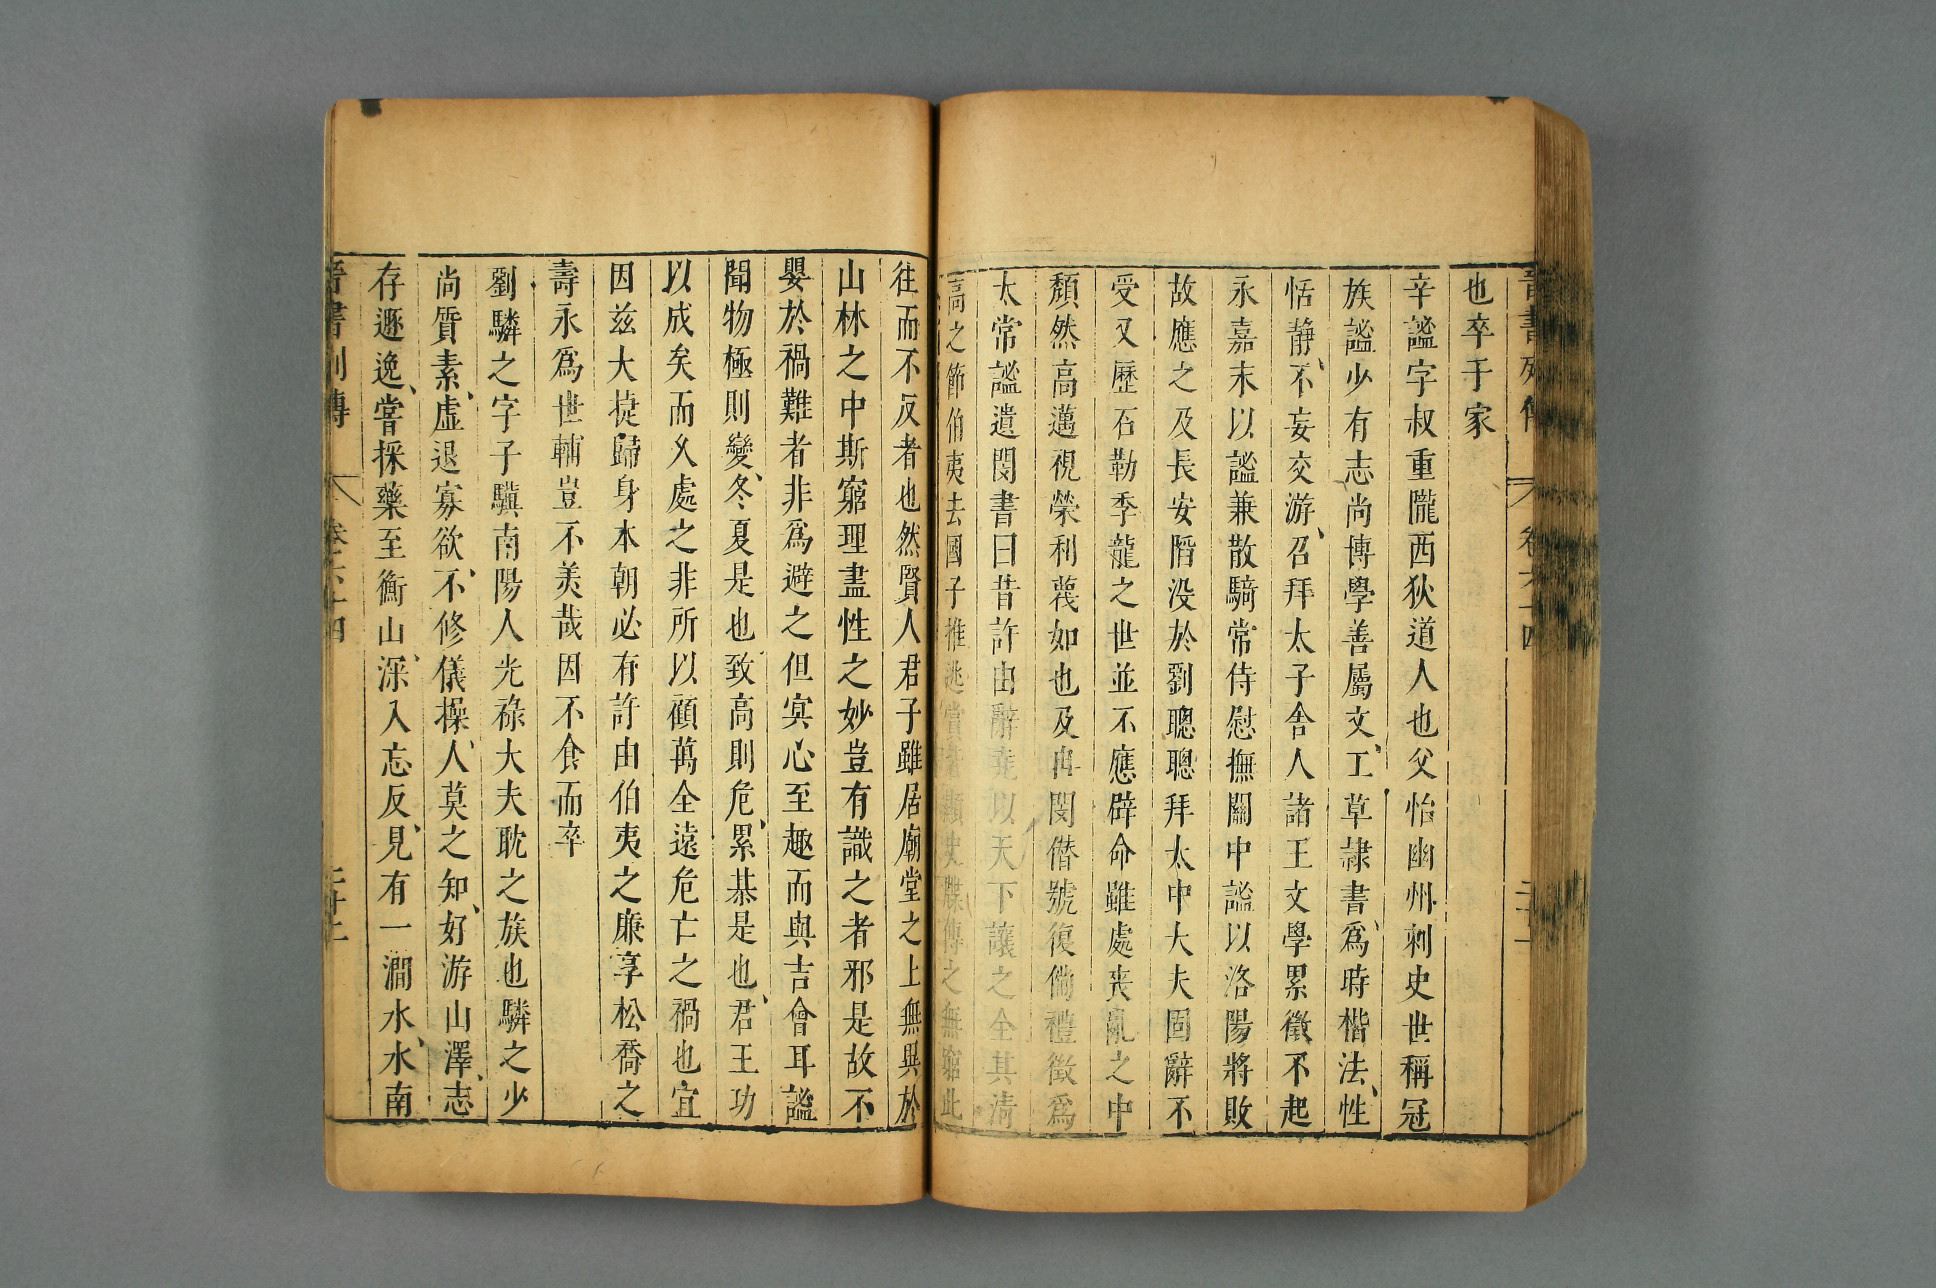 晉書列傳 卷六十四
也卒于家
辛謐字叔重隴西狄道人也父怡幽州刺史世稱冠
族謐少有志尚博學善屬文工草隷書爲時楷法性
恬静不妄交游召拜太子舍人諸王文學累徵不起
永嘉末以謐兼散騎常侍慰撫關中謐以洛陽將敗
故應之及長安䧟没於劉聰聰拜太中大夫固辭不
受又歷石勒季龍之世並不應辟命雖處喪亂之中
頹然高邁視榮利蔑如也及冉閔僭號復備禮徵爲
太常謐遺閔書曰昔許由辭堯以天下讓之全其清
高之節伯夷去國子推逃賞皆顯史牒傳之無窮此
往而不反者也然賢人君子雖居廟堂之上無異於
山林之中斯窮理盡性之妙豈有識之者邪是故不
嬰於禍難者非爲避之但冥心至趣而與吉會耳謐
聞物極則變冬夏是也致高則危累棊是也君王功
以成矣而久處之非所以顧萬全遠危亡之禍也宜
因兹大捷歸身本朝必有許由伯夷之廉享松喬之
壽永爲世輔豈不美哉因不食而卒
劉驎之字子驥南陽人光祿大夫耽之族也驎之少
尚質素虛退寡欲不修儀操人莫之知好游山澤志
存遯逸嘗採藥至衡山深入忘反見有一澗水水南
晉書列傳 卷六十四 二十二